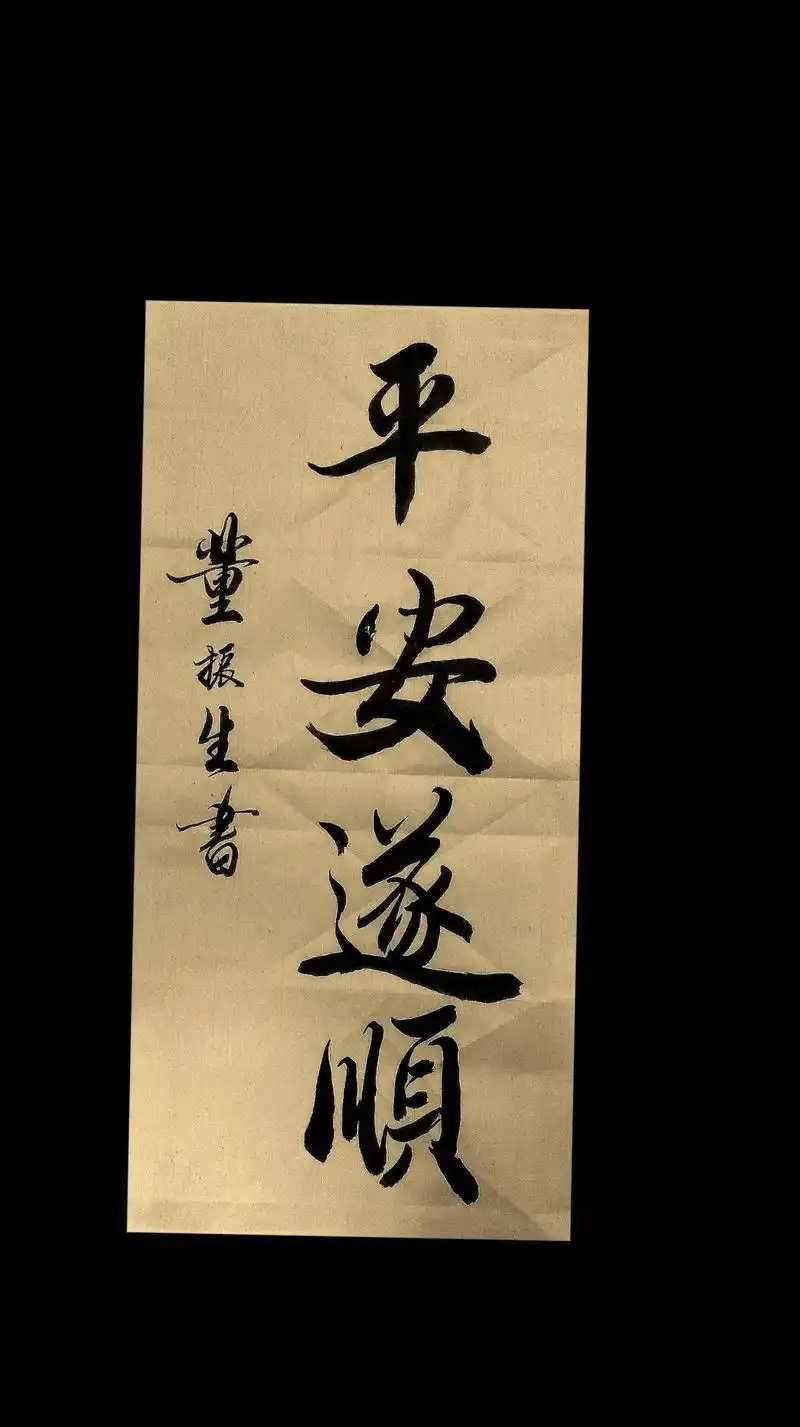 平安遂順
董振生書